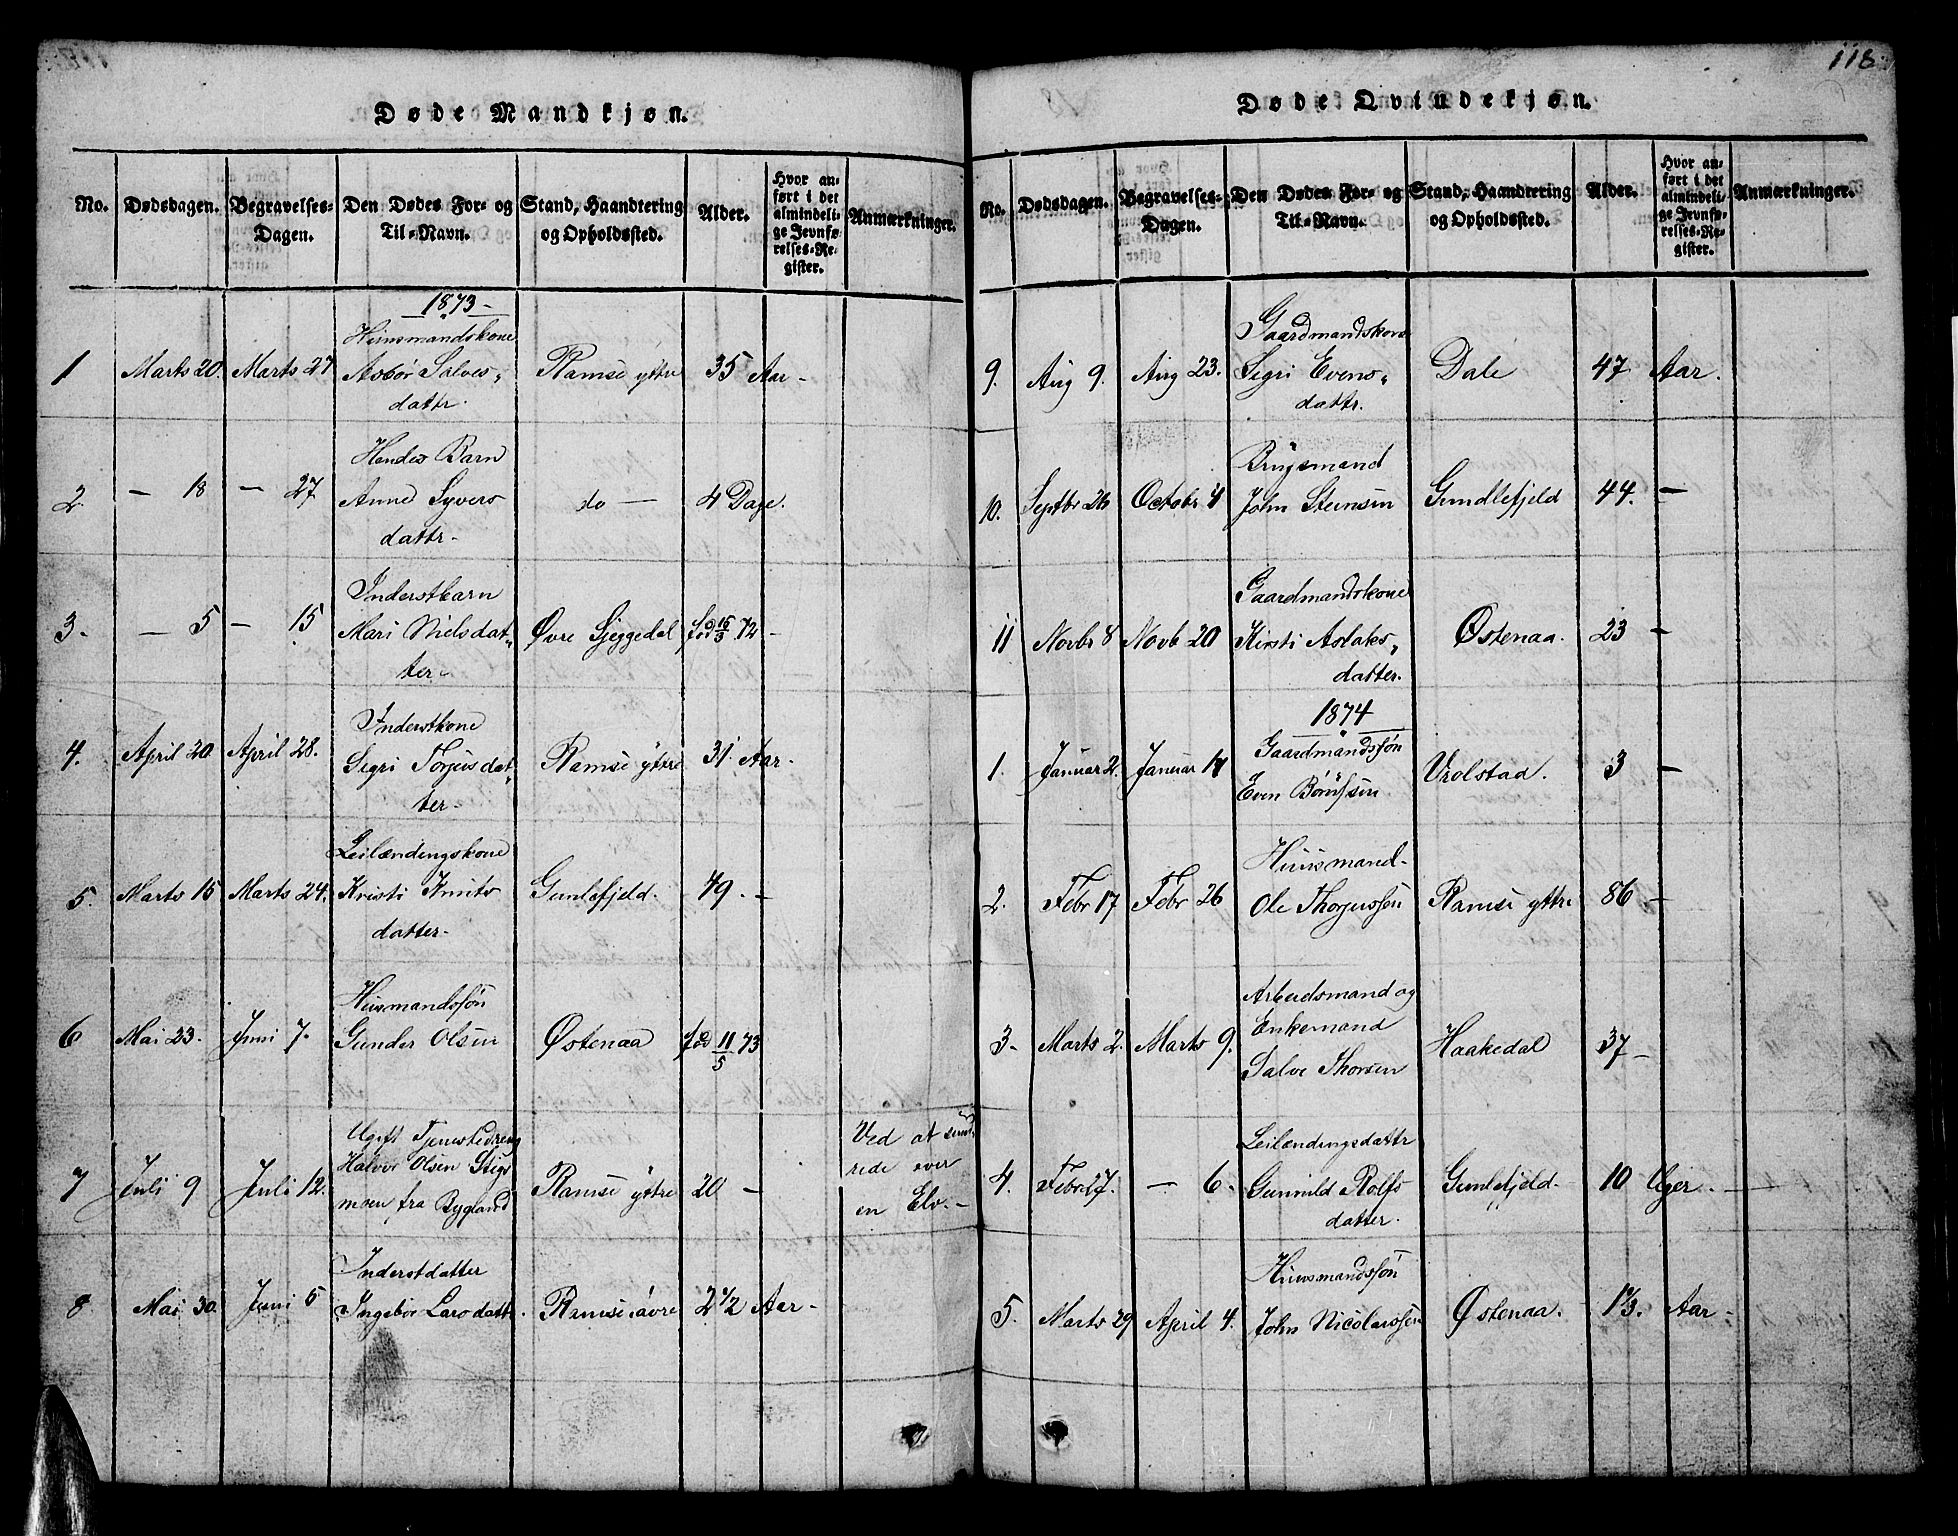 118
Døde Mandkjøn.
No. Dødsdagen. Begravelses-Dagen. Den Dødes For- og Til-Navn. Stand, Haandtering og Opholdssted. Alder. Hvor anført i det almindelige Jevnførelses-Register. Anmærkninger.
1873
Huusmandskone
1 Marts 20. Marts 27 Asbør Salves„ Ramse yttre 35 Aar -
dattr.
Hendes Barn
2. — 18 — 27 Anne Syvers do — 4 Dage.
dattr-
Inderstbarn
3. — 5 — 15 Mari Nielsdat„ Øvre Sjeggedal fød 15/3 72 -
ter-
Inderstkone
4. April 20 April 28. Sigri Torjusdat„ Ramse yttre 31 Aar -
ter-
Leilændingskone
5. Marts 15 Marts 24. Kristi Knuts Gunlefjeld. 49. -
datter-
Huusmandssøn
6 Mai 23. Juni 7. Gunder Olsen Østenaa fød 11/5 73
Ugift Tjenestedreng Ved at svøm„
7 Juli 9 Juli 12. Halvor Olsen Stigs Ramse yttre 20 — ride over
moen fra Bygland en Elv. -
Inderstdatter
8 Mai 30. Juni 5 Ingebør Larsdattr. Ramse øvre 2 1/2 Aar -
Døde Qvindekjøn.
No. Dødsdagen. Begravelses-Dagen. Den Dødes For- og Til-Navn. Stand, Haandtering og Opholdssted. Alder. Hvor anført i det almindelige Jevnførelses-Register. Anmærkninger.
Gaardmandskone
9. Aug 9. Aug 23. Sigri Evens„ Dale 47 Aar.
dattr.
Brugsmand
10. Septbr 26 Octobr 4 John Steensen Gundlefjeld 44. —
Gaardmandskone
11 Novbr 8 Novb 20 Kirsti Aslaks„ Østenaa. 23 —
datter.
1874
Gaardmandssøn
1. Januar 2. Januar 14 Even Børufsen Vrolstad. 3 —
Huusmand-
2. Febr 17 Febr 26 Ole Thorjussøn Ramse yttre 86 —
Arbeidsmand og
Enkemand
3. Marts 2. Marts 9. Salve Thorsen Haakedal 37 —
Leilændingsdattr
4. Febr 27. — 6. Gunnild Rolfs Gunlefjeld. 10 Uger. —
datter.
Huusmandssøn
5. Marts 29 April 4. John Nicolaissen Østenaa. 1 1/3. Aar -